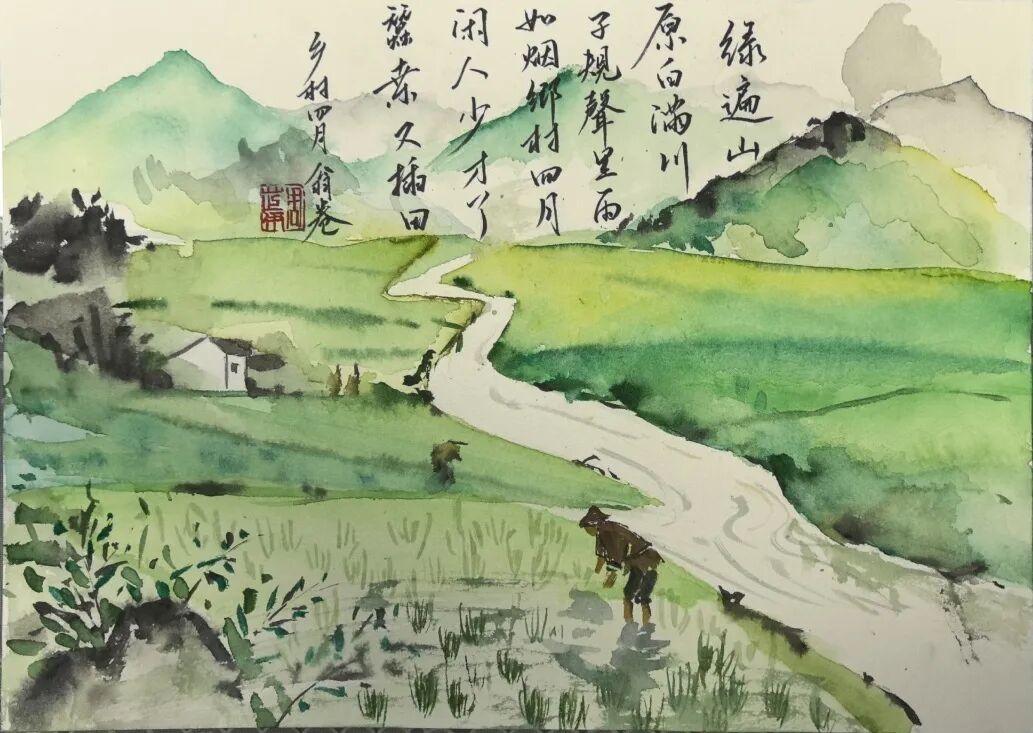 绿遍山
原白满川
子規聲里雨
如烟鄉村四月
闲人少才了
蠶桑又插田
乡村四月 翁卷